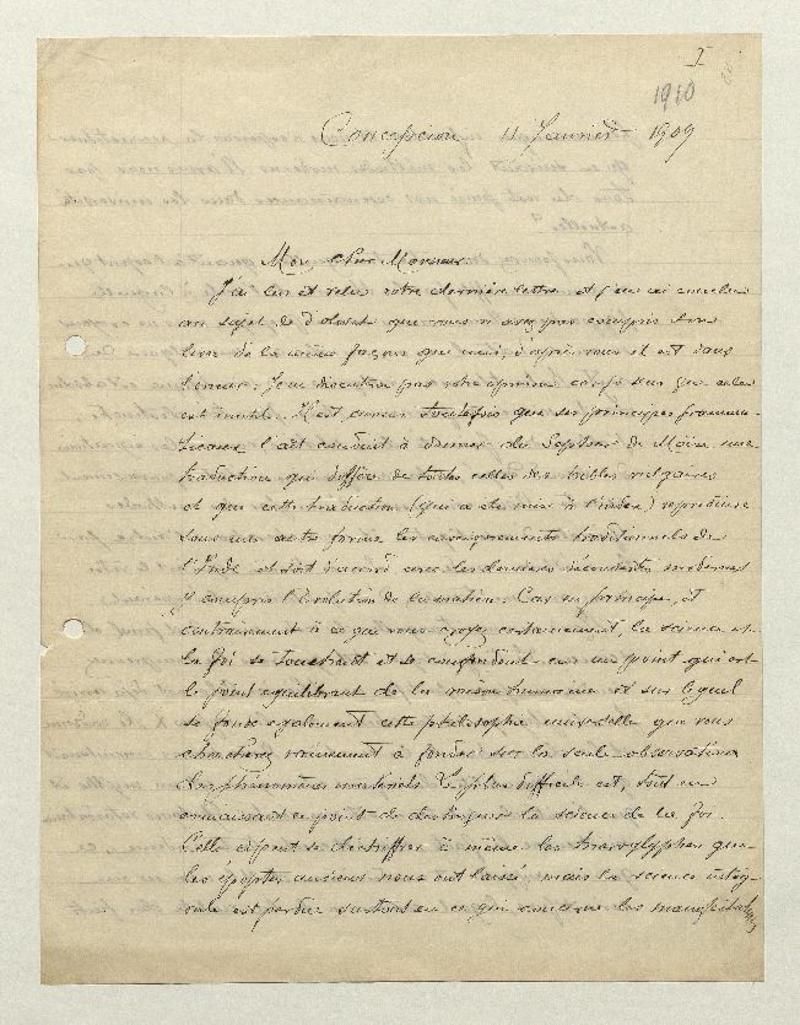 I
1910
Concepcion 11 Janvier 1909
Mon cher Monsieur.
J'ai lu et relu votre dernière lettre et j'en ai conclu
au sujet de d'olivet que vous n'avez pas compris son
livre de la même façon que moi, d'après vous il est dans
l'erreur; Je ne discuterai pas votre opinion car je sens que cela
est inutile. Il est curieux toutefois que ses principes gramma-
ticaux l'ait conduit à donner du Sepher de Moïse une
traduction qui diffère de toutes celles des bibles vulgaires
et que cette traduction (qui a été mise à l'index) reproduise
sous une autre forme les enseignements traditionnels de
l'Inde et soit d'accord avec les dernières découvertes modernes
y compris l'Evolution de la matière. Car en principe, et
contrairement à ce que vous croyez certainement, la science et
la foi se touchent et se confondent en un point qui est
le point équilibrant de la raison humaine et sur lequel
se fonde également cette philosophie universelle que vous
cherchez vainement à fonder sur la seule observation
des phénomènes matériels. Le plus difficile est, tout en
connaissant ce point de distinguer la science de la foi.
Cette clef peut se déchiffrer à même les hiéroglyphes que
les époptes anciens nous ont laissé mais la science intég-
rale est perdue surtout en ce qui concerne les manifestations